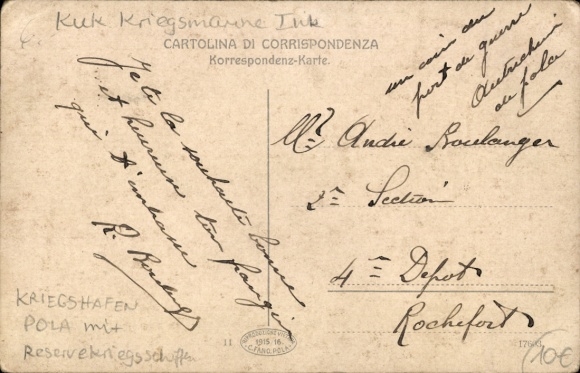 KuK Kriegsmarine
CARTOLINA DI CORRISPONDENZA
Korrespondenz-Karte.
un coin du
port de guerre
Autrichien
de pola
Je te la souhaite bonne
et heureuse ton frangin
qui t'embrasse
R.
Mr André Boulanger
2e Section
4e Depot
Rochefort
KRIEGSHAFEN
POLA mit
Reservekriegsschiffen
11
1915-16
10€